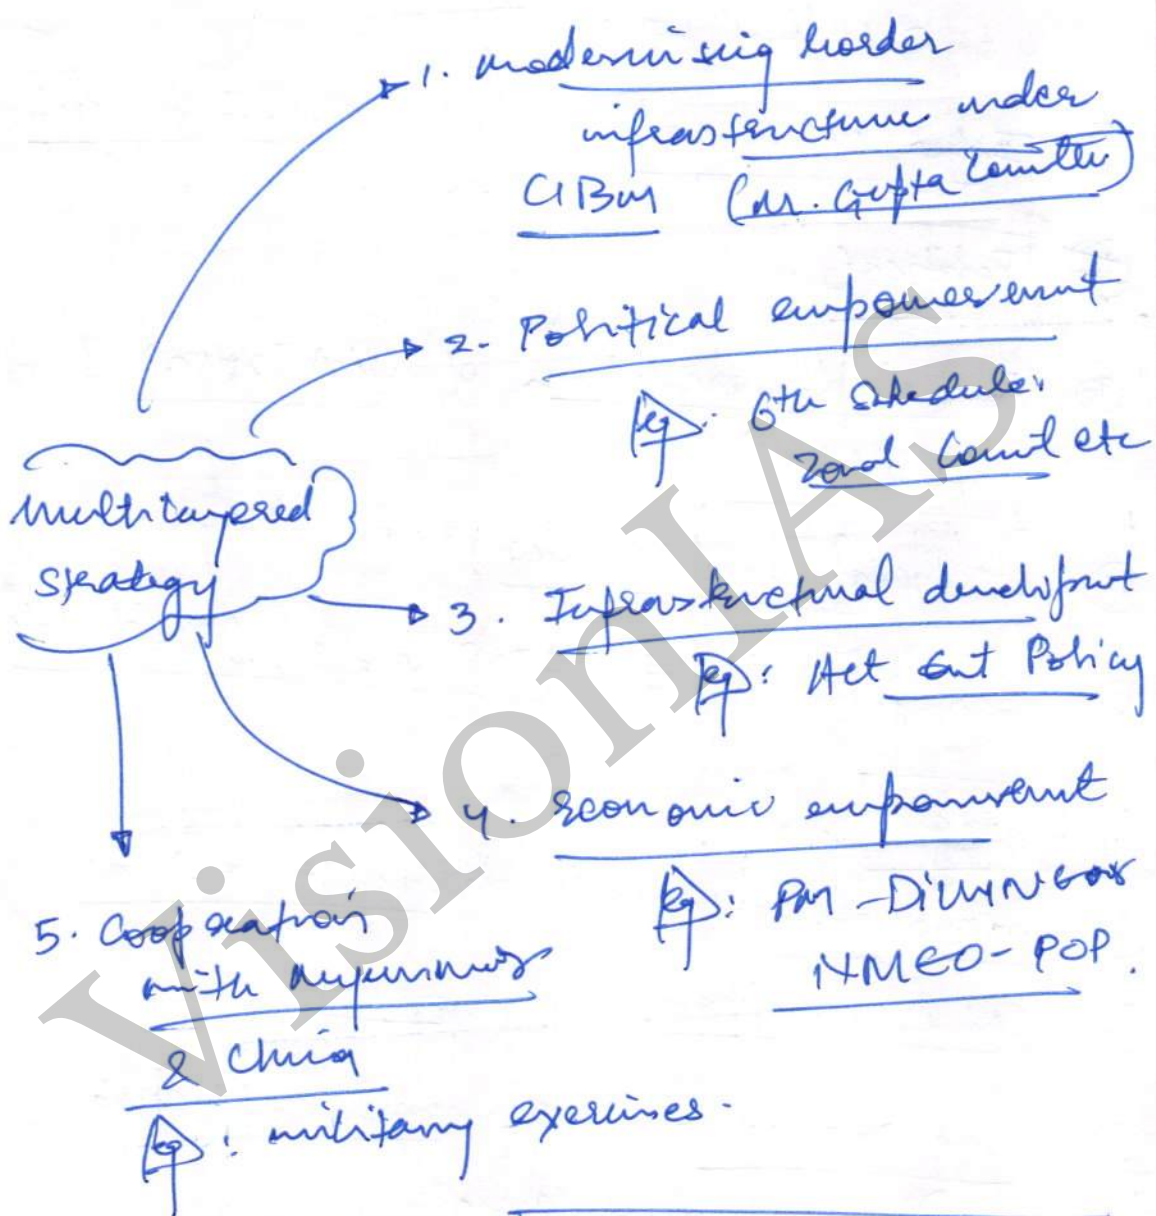 1. Modernising border
infrastructure under
CIBM (M. Gupta Committee)
2. Political empowerment
Eg: 6th Schedule,
Zonal Council etc
Multilayered
strategy
3. Infrastructural development
Eg: Act East Policy
4. Economic empowerment
Eg: PM-DivyN
NMEO-POP.
5. Cooperation
with
& China
Eg: military exercises.
VisionIAS